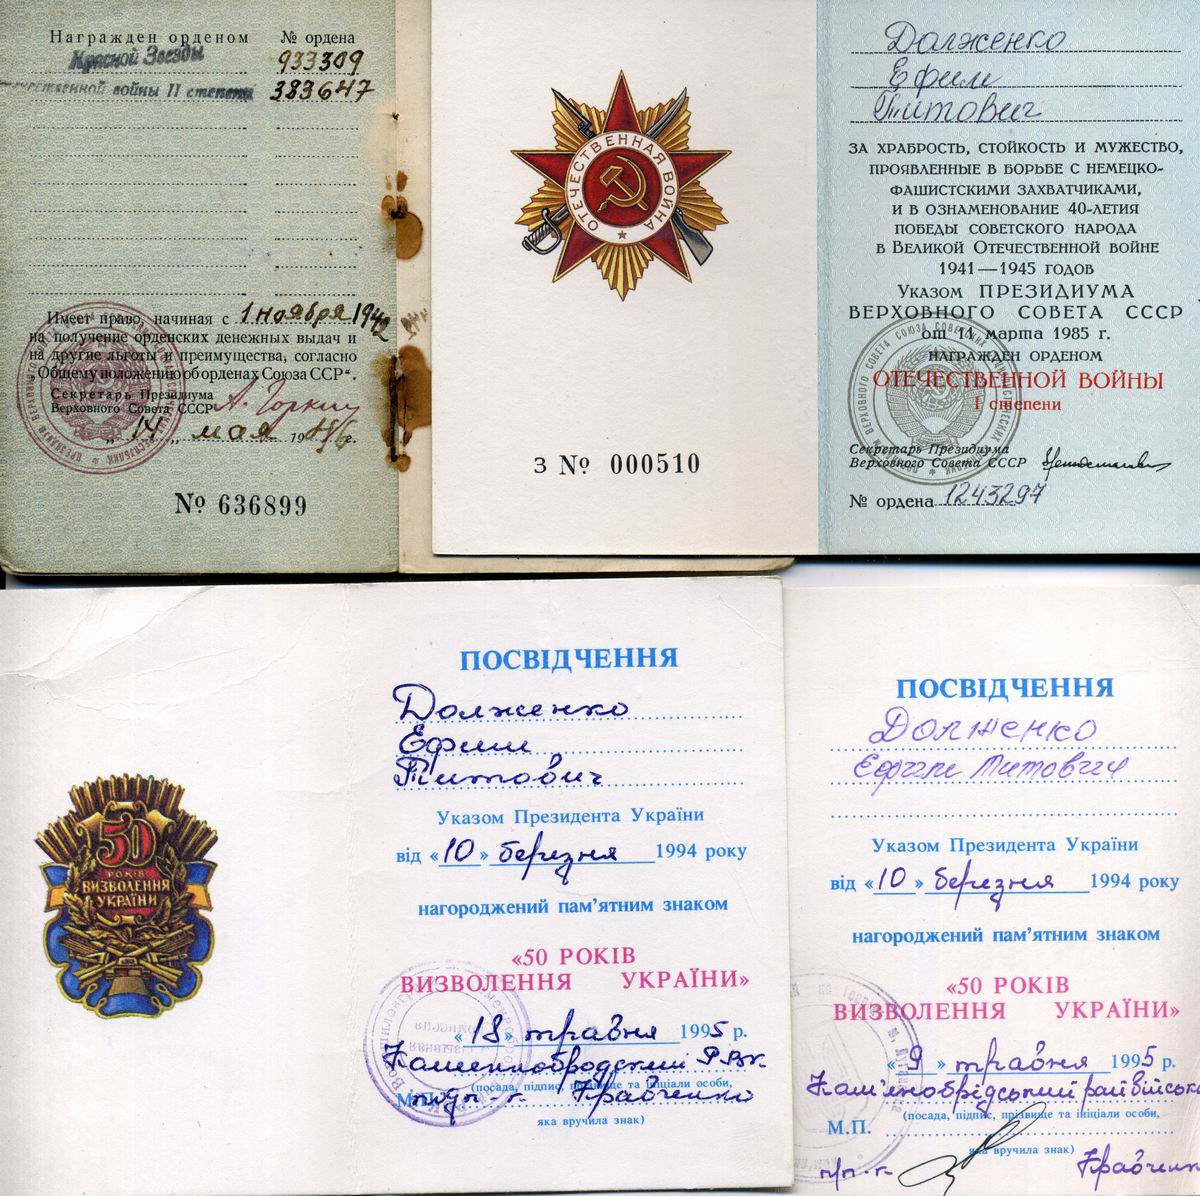 Награжден орденом № ордена
Красной Звезды 933309
Отечественной войны II степени 383647
Имеет право, начиная с 1 ноября 1942
на получение орденских денежных выдач и
на другие льготы и преимущества, согласно
„Общему положению об орденах Союза ССР“.
Секретарь Президиума
Верховного Совета СССР А. Горкин
мая 19 г.
№ 636899
ОТЕЧЕСТВЕННАЯ ВОЙНА
З № 000510
Долженко
Ефим
Титович
ЗА ХРАБРОСТЬ, СТОЙКОСТЬ И МУЖЕСТВО,
ПРОЯВЛЕННЫЕ В БОРЬБЕ С НЕМЕЦКО-
ФАШИСТСКИМИ ЗАХВАТЧИКАМИ,
И В ОЗНАМЕНОВАНИЕ 40-ЛЕТИЯ
ПОБЕДЫ СОВЕТСКОГО НАРОДА
В ВЕЛИКОЙ ОТЕЧЕСТВЕННОЙ ВОЙНЕ
1941—1945 ГОДОВ
УКАЗОМ ПРЕЗИДИУМА
ВЕРХОВНОГО СОВЕТА СССР
от 11 марта 1985 г.
НАГРАЖДЕН ОРДЕНОМ
ОТЕЧЕСТВЕННОЙ ВОЙНЫ
I степени
Секретарь Президиума
Верховного Совета СССР
№ ордена 1243297
50
РОКІВ
ВИЗВОЛЕННЯ
УКРАЇНИ
ПОСВІДЧЕННЯ
Долженко
Ефим
Титович
Указом Президента України
від «10» березня 1994 року
нагороджений пам’ятним знаком
«50 РОКІВ
ВИЗВОЛЕННЯ УКРАЇНИ»
«18» травня 1995 р.
Каменнобродский РВК
(посада, підпис, прізвище та ініціали особи,
М.П. подп-к Кравченко
яка вручила знак)
ПОСВІДЧЕННЯ
Долженко
Ефім Титович
Указом Президента України
від «10» березня 1994 року
нагороджений пам’ятним знаком
«50 РОКІВ
ВИЗВОЛЕННЯ УКРАЇНИ»
«9» травня 1995 р.
Кам'янобрідський райвійськ
(посада, підпис, прізвище та ініціали особи,
М.П.
яка вручила знак)
п/п-к Кравченко